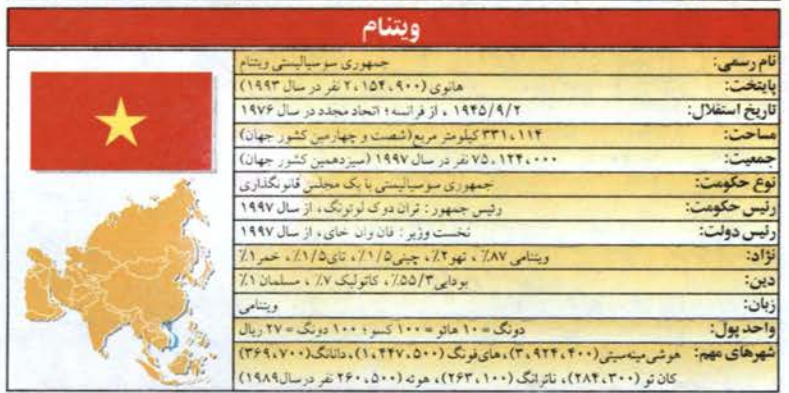 ویتنام
نام رسمی: جمهوری سوسیالیستی ویتنام
پایتخت: هانوی (۲،۱۵۴،۹۰۰ نفر در سال ۱۹۹۳)
تاریخ استقلال: ۱۹۴۵/۹/۲ ، از فرانسه؛ اتحاد مجدد در سال ۱۹۷۶
مساحت: ۳۳۱،۱۱۴ کیلومتر مربع (شصت و چهارمین کشور جهان)
جمعیت: ۷۵،۱۲۴،۰۰۰ نفر در سال ۱۹۹۷ (سیزدهمین کشور جهان)
نوع حکومت: جمهوری سوسیالیستی با یک مجلس قانونگذاری
رئیس حکومت: رئیس جمهور: تران دوک لوئونگ، از سال ۱۹۹۷
رئیس دولت: نخست وزیر: فان وان خای، از سال ۱۹۹۷
نژاد: ویتنامی ۸۷٪ ، تهو ۲٪ ، چینی ۱/۵٪ ، تای ۱/۵٪ ، خمر ۱٪
دین: بودایی ۵۵/۳٪ ، کاتولیک ۷٪ ، مسلمان ۱٪
زبان: ویتنامی
واحد پول: دونگ = ۱۰ هائو = ۱۰۰ کسو؛ ۱۰۰ دونگ = ۲۷ ریال
شهرهای مهم: هوشی‌مینه‌سیتی (۳،۹۲۴،۴۰۰)، های‌فونگ (۱،۴۴۷،۵۰۰)، دانانگ (۳۶۹،۷۰۰)
کان تو (۲۸۴،۳۰۰)، ناترانگ (۲۶۳،۱۰۰)، هوئه (۲۶۰،۵۰۰ نفر در سال ۱۹۸۹)